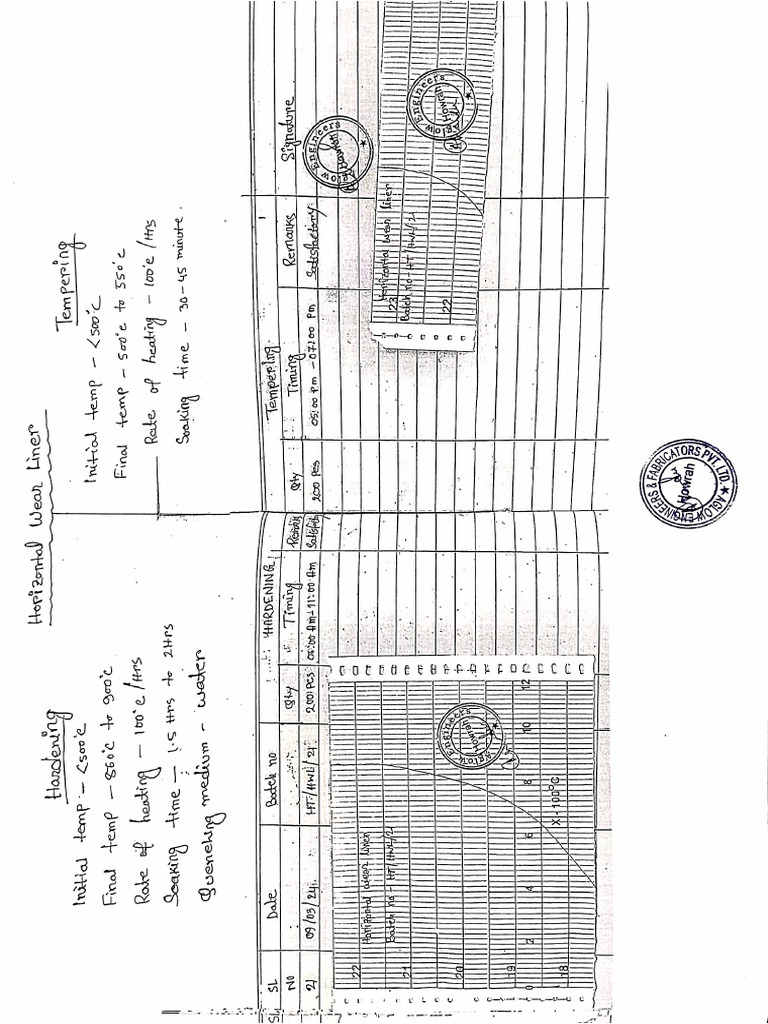 Horizontal Wear Liner
Hardening
Initial temp - <500°c
Final temp - 860°c to 900°c
Rate of heating - 100°c/Hrs
Soaking time - 1.5 Hrs to 2Hrs
Quenching medium - water
Tempering
Initial temp - <500°c
Final temp - 500°c to 550°c
Rate of heating - 100°c/Hrs
Soaking time - 30-45 minute.
HARDENING
SL NO Date Batch no Qty Timing Remark
21 09/03/24 HT/HWL/21 200 Pcs 05:00 Am-11:00 Am Satisfied
Tempering
Qty Timing Remarks Signature
200 Pcs 05:00 Pm - 07:00 Pm Satisfactory
Aglow Engineers
Howrah
Horizontal wear liner
Batch no - HT/HWL/21
22
21
20
19
18
0 2 4 6 8 10 12
X-100°C
Aglow Engineers
Howrah
23
Horizontal wear liner
Batch no - HT/HWL/21
22
Aglow Engineers
Howrah
AGLOW ENGINEERS & FABRICATORS PVT. LTD.
Howrah